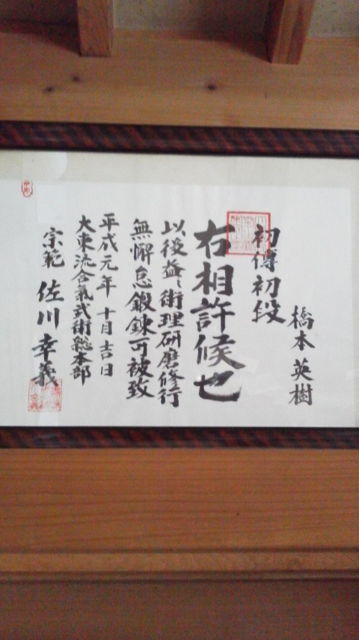 橋本英樹
初傳初段
右相許候也
以後益々術理研磨修行
無懈怠鍛錬可被致
平成元年 十月吉日
大東流合氣武術総本部
宗範 佐川幸義